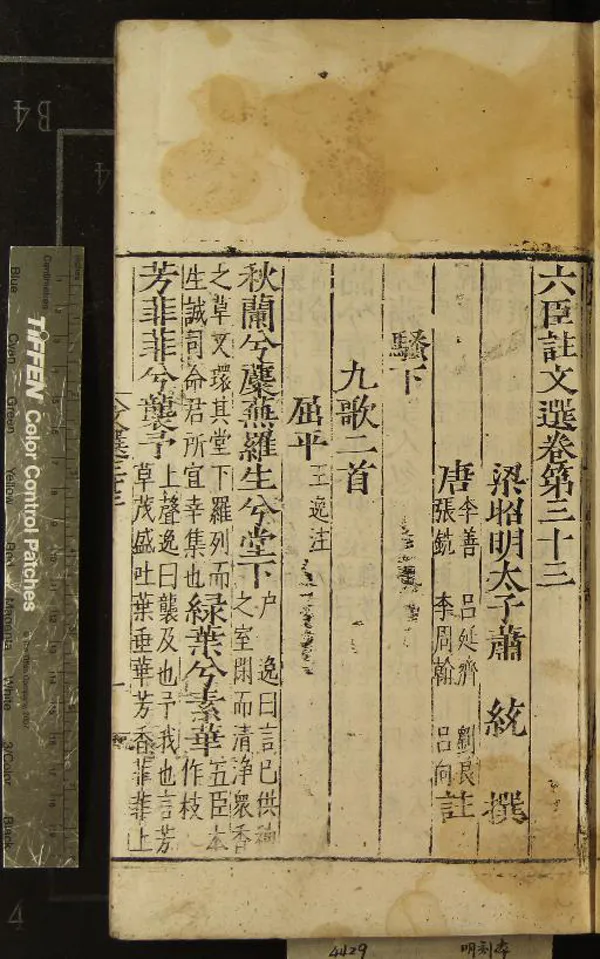 六臣註文選卷第三十三
梁昭明太子蕭統撰
唐李善 呂延濟 劉良
張銑 李周翰 呂向註
騷下
九歌二首
屈平王逸注
秋蘭兮麋蕪羅生兮堂下户 逸曰言已供神
之室閑而清淨衆香
之草又環其堂下羅列而
生誠司命君所宜幸集也綠葉兮素華五臣本
作枝
芳菲菲兮襲予上聲逸曰襲及也予我也言芳
草茂盛吐葉垂華芳香菲菲上
TIFFEN Color Control Patches
Centimetres
Blue
Cyan
Green
Yellow
Red
Magenta
White
3/Color
Black
B4
4
4
4429
明刻本